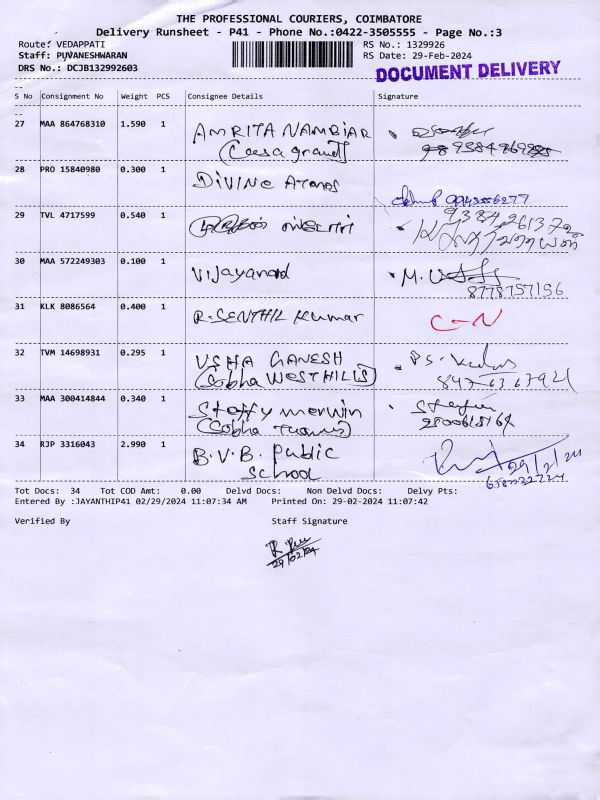 THE PROFESSIONAL COURIERS, COIMBATORE
Delivery Runsheet - P41 - Phone No.:0422-3505555 - Page No.:3
Route: VEDAPPATI
RS No.: 1329926
Staff: PUVANESHWARAN
RS Date: 29-Feb-2024
DRS No.: DCJB132992603
DOCUMENT DELIVERY
S No Consignment No Weight PCS Consignee Details Signature
27 MAA 864768310 1.590 1 AMRITA NAMBIAR
(Casa grand)
28 PRO 15840980 0.300 1 DIVINE Atoms
9943556277
29 TVL 4717599 0.540 1
30 MAA 572249303 0.100 1 Vijayanand M.
8778757156
31 KLK 8086564 0.400 1 R. SENTHIL Kumar C-N
32 TVM 14698931 0.295 1 USHA GANESH P.S.
(Sobha WEST HILLS)
33 MAA 300414844 0.340 1 Steffy merwin
(Sobha
34 RJP 3316043 2.990 1 B.V.B. Public
School 29/2/24
Tot Docs: 34 Tot COD Amt: 0.00 Delvd Docs: Non Delvd Docs: Delvy Pts:
Entered By :JAYANTHIP41 02/29/2024 11:07:34 AM Printed On: 29-02-2024 11:07:42
Verified By Staff Signature
29/02/24